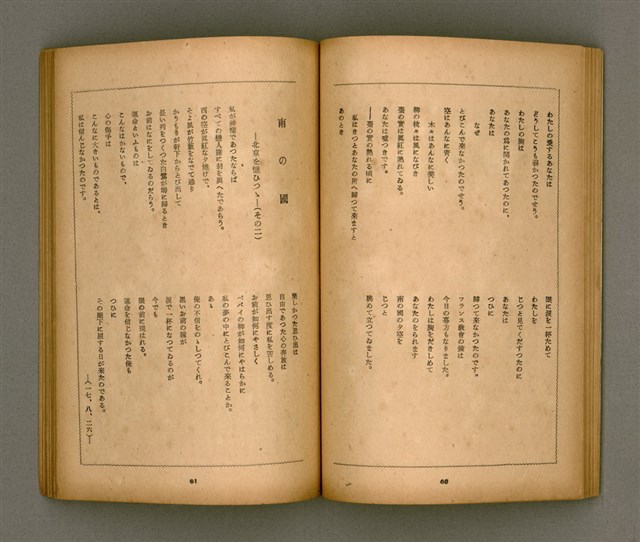 わたしの愛するあなたは
どうしてこうも弱かつたのでせう。
わたしの胸は
あなたの爲に開かれてあつたのに、
あなたは
なぜ
とびこんで來なかつたのでせう。
空はあんなに青く
木々はあんなに美しい
柳の枝々は風になびき
棗の實は眞紅に熟れてゐる。
あなたは嘘つきです。
——棗の實の熟れる頃に
私はきつとあなたの所へ歸つて來ますと
あのとき
眼に涙を一杯ためて
わたしを
じつと見てくだすつたのに
あなたは
つひに
歸つて來なかつたのです。
フランス教會の鐘は
今日の暮方もなりました。
わたしは胸をだきしめて
あなたのをられます
南の國の夕空を
じつと
眺めて立つてゐました。
60
南の國
—北京を憶ひつゝ—(その二)
私が神樣であつたならば
すべての戀人達に羽を與へたであらう。
西の空が眞紅な夕燒けで、
そよ風が竹籔をなでて通り
かうもりが軒下からとび出して
長い列をつくつた白鷺が塒に歸るとき
お前はなにをしてゐるのだらう。
運命といふものは
こんなはかないもので、
心の傷手は
こんなに大きいものであるとは、
私は信んじなかつたのです。
樂しかつた思ひ出は
自由であつた心の奔放は
思ひ出す度に私を苦しめる。
お前が如何にやさしく
ペペイの柳が如何にやはらかに
私の夢の中にとびこんで來ることか。
あゝ
俺の不信をのゝしつてくれ。
黒いお前の瞳が
涙で一杯になつてゐるのが
今でも
眼の前に現はれる。
運命を信じなかつた俺も
つひに
その膝下に屈する日が來たのである。
—(一七、八、二六)—
61